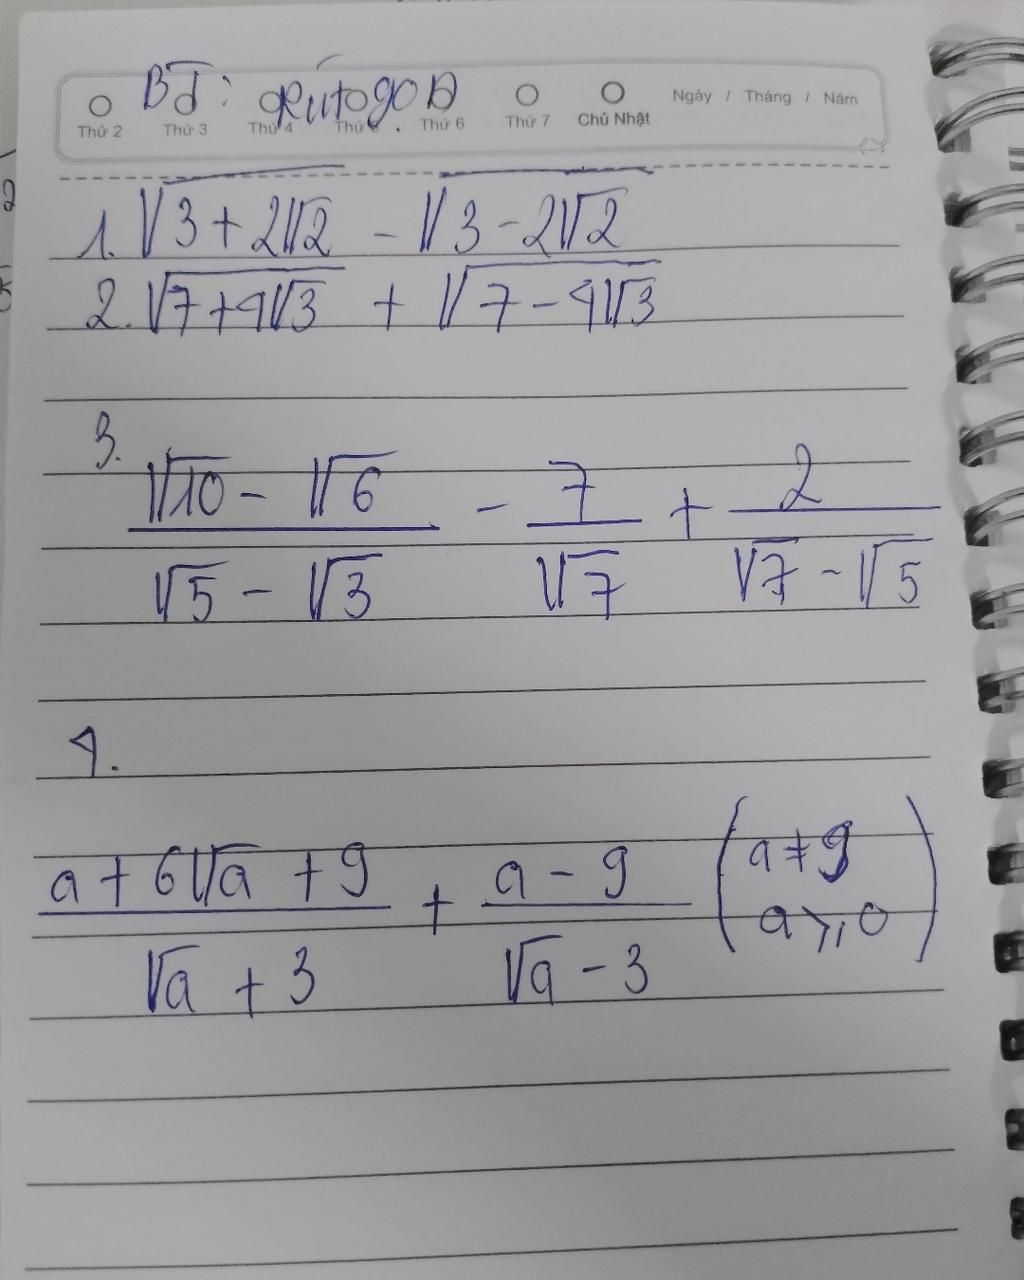 BT: Rút gọn
Thứ 2 Thứ 3 Thứ 4 Thứ 5 Thứ 6 Thứ 7 Chủ Nhật Ngày / Tháng / Năm
1. √(3+2√2) - √(3-2√2)
2. √(7+4√3) + √(7-4√3)
3.
(√10 - √6)/(√5 - √3) - 7/√7 + 2/(√7 - √5)
4.
(a + 6√a + 9)/(√a + 3) + (a - 9)/(√a - 3) (a ≠ 9
a ≥ 0)